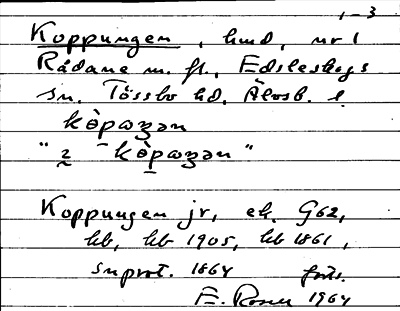 1-3
Koppungen, hmd, nr 1
Rådane m. fl., Edsleskogs
sn, Tössbo hd, Älvsb. l.
kòpaʒən
" 2 kòpaʒən "
Koppungen jr, ek. G62,
hb, hb 1905, hb 1861,
snprot. 1864 forts.
E. Rosen 1964